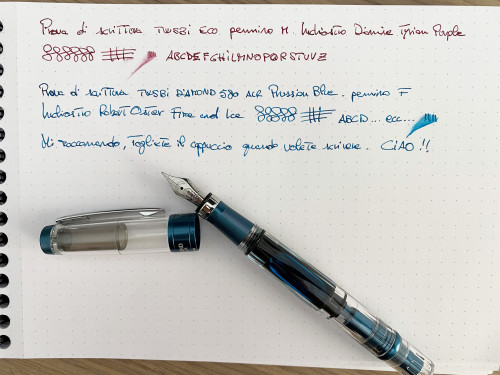 Prova di scrittura TWSBI ECO pennino M. Inchiostro Diamine Tyrian Purple
ABCDEFGHILMNOPQRSTUVZ
Prova di scrittura TWSBI DIAMOND 580 ALR Prussian Blue. pennino F
Inchiostro Robert Oster Fire and Ice ABCD... ecc...
Mi raccomando, togliete il cappuccio quando volete scrivere. CIAO!!